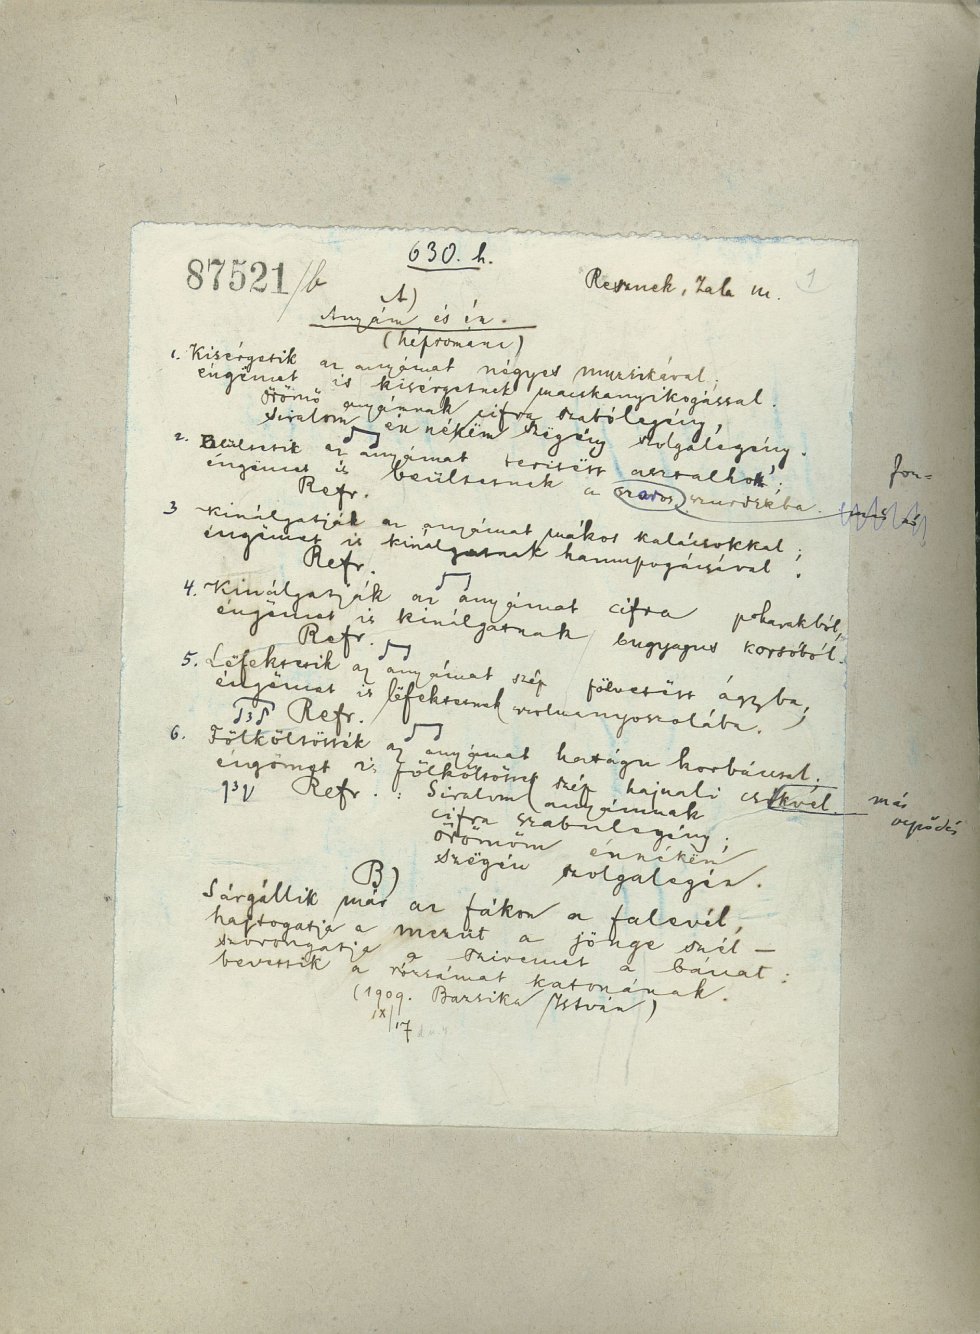 630. h.
87521/b
Resznek, Zala m.
1
A)
Anyám és én.
(néprománc)
1. Kisérgetik az anyámat négyes muzsikával;
éngömet is kisérgetnek macskanyikogással.
Örömö anyámnak cifra szabólegény,
siralom én nékëm szëgény szolgalegény.
2. Beültetik az anyámat terítëtt asztalhoz;
éngömet is beültetnek a szaros szurdékba.
fon-
Refr.
3 Kinálgatják az anyámat mákos kalácsokkal;
éngömet is kinálgatnak hamupogácsával.
Refr.
4. Kinálgatják az anyámat cifra poharakból,
éngömet is kinálgatnak bugyagus korsóból.
Refr.
5. Lëfektetik az anyámat szép fölvetëtt ágyba,
éngömet is lëfektetnek
Refr.
6. Fölköltötték az anyámat hatágu korbáccsal;
éngömet is fölköltöttek szép hajnali csókvel.
más
Refr.: Siralom anyámnak
cifra szabulegény;
örömöm énnékëm
szëgén szolgalegén.
B)
Sárgállik már az fákon a falevél,
hajtogatja a mezüt a jönge szél —
szorongatja a szivemet a bánat:
bevettik a rózsámat katonának.
(1909. Barsika István)
IX/17